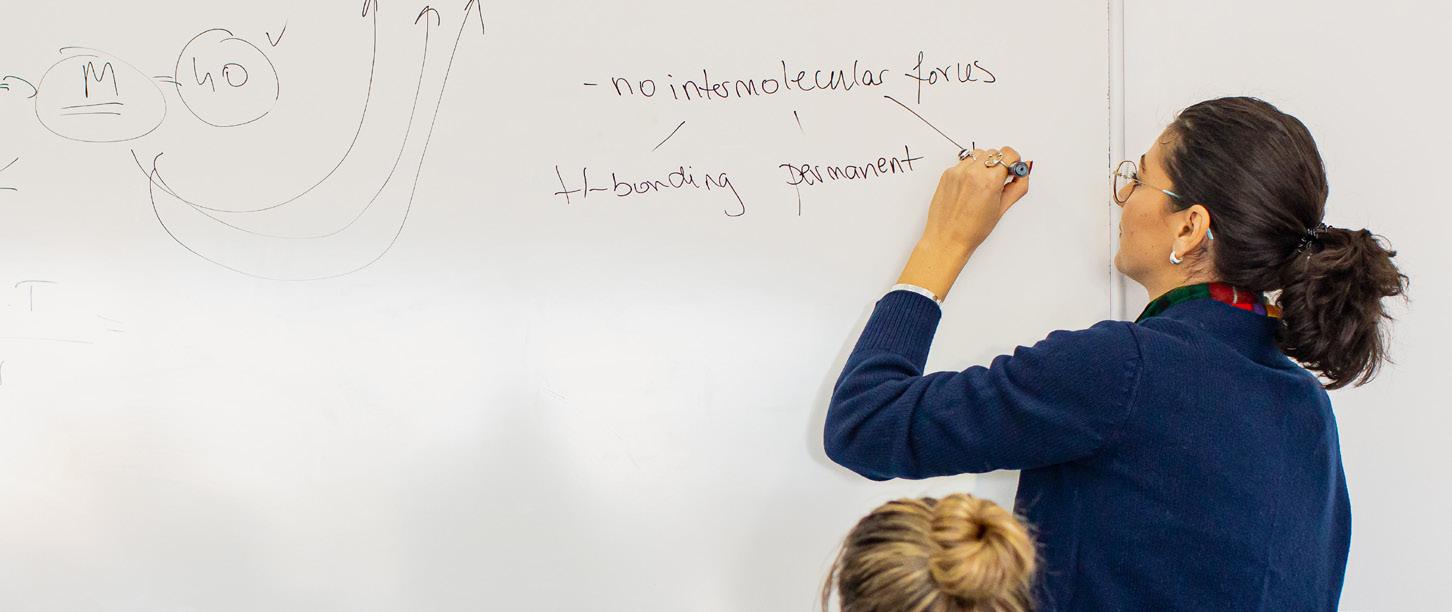 M = 40
- no intermolecular forces
H-bonding permanent
T